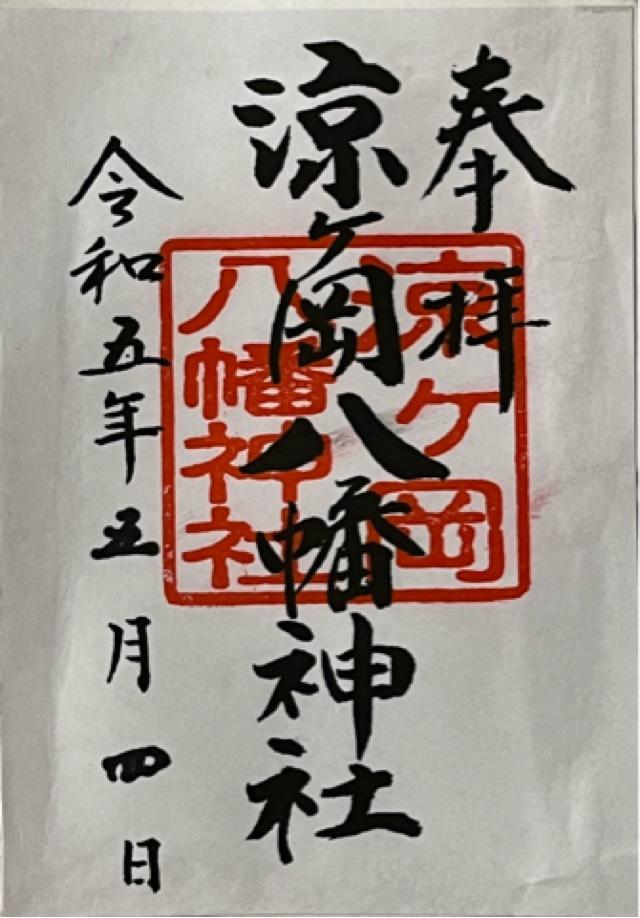 奉拝
涼ヶ岡八幡神社
涼ケ岡
八幡神社
令和五年五月四日